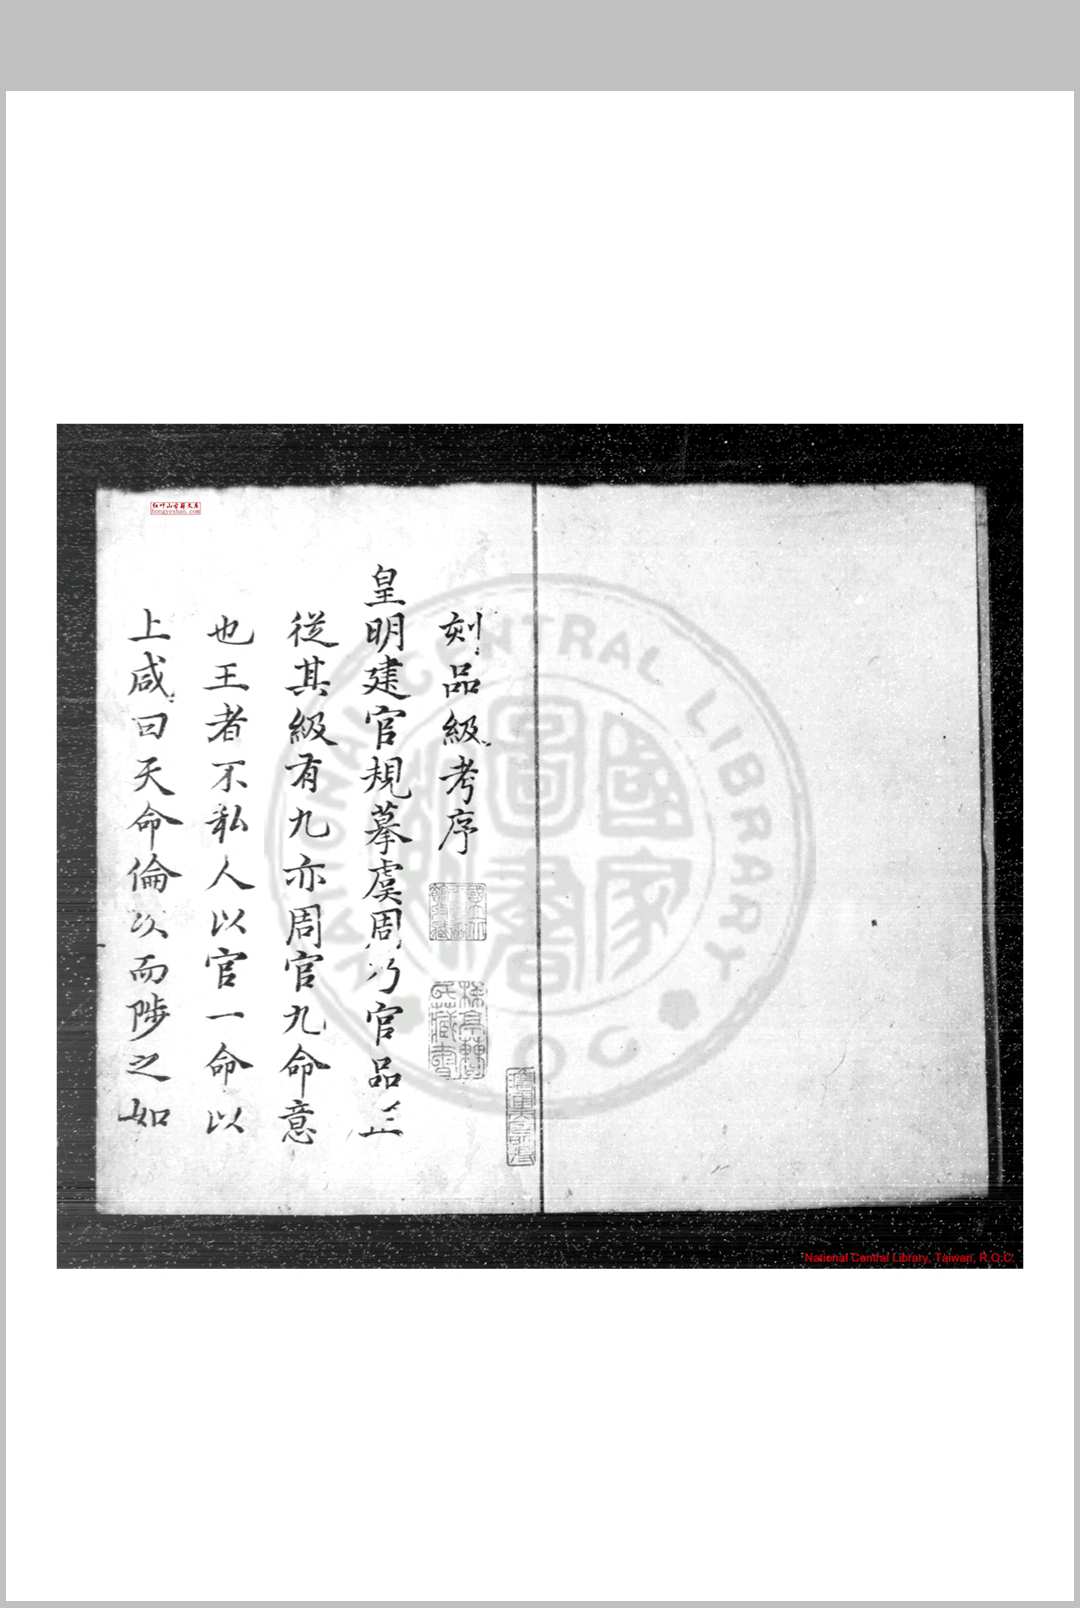 刻品級考序
皇明建官規摹虞周乃官品正
從其級有九亦周官九命意
也王者不私人以官一命以
上咸曰天命倫次而陟之如
NATIONAL CENTRAL LIBRARY
國家圖書館
R.O.C.
hongyeshan.com
National Central Library, Taiwan, R.O.C.